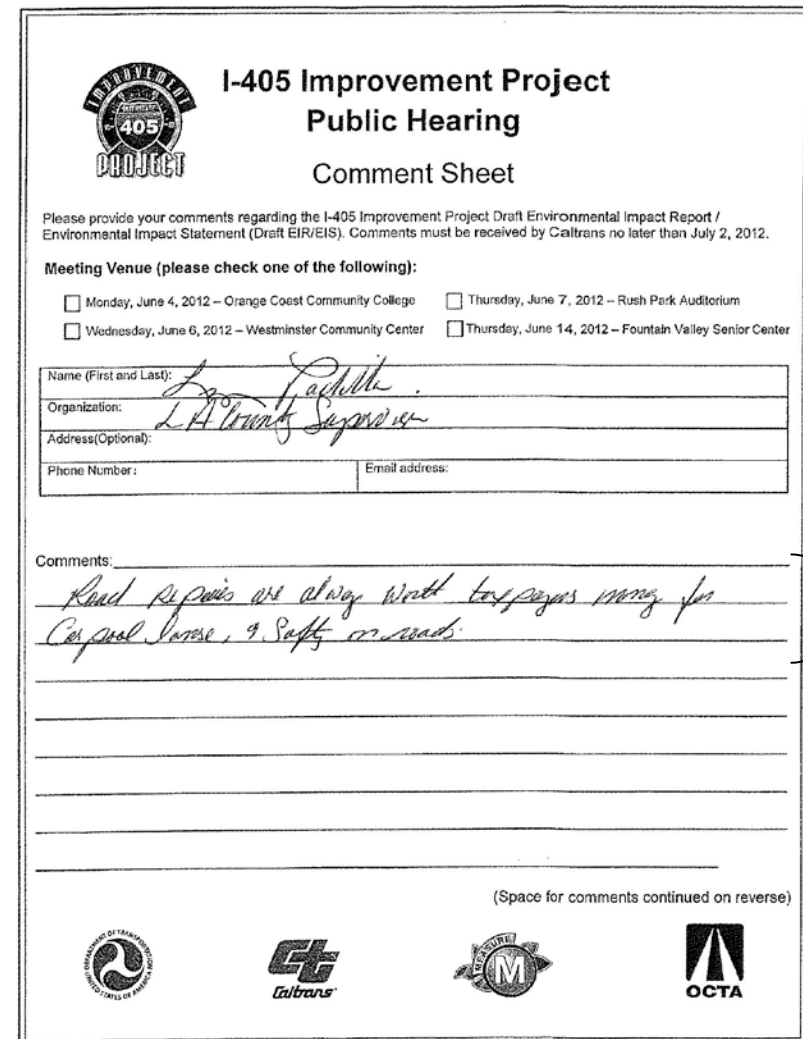 IMPROVEMENT
405
PROJECT
I-405 Improvement Project
Public Hearing
Comment Sheet
Please provide your comments regarding the I-405 Improvement Project Draft Environmental Impact Report /
Environmental Impact Statement (Draft EIR/EIS). Comments must be received by Caltrans no later than July 2, 2012.
Meeting Venue (please check one of the following):
Monday, June 4, 2012 – Orange Coast Community College
Thursday, June 7, 2012 – Rush Park Auditorium
Wednesday, June 6, 2012 – Westminster Community Center
Thursday, June 14, 2012 – Fountain Valley Senior Center
Name (First and Last): Padilla
Organization: LA County Supervisor
Address(Optional):
Phone Number:
Email address:
Comments:
Road Repairs are always worth taxpayers money for
Carpool lanse, & Safty on roads.
(Space for comments continued on reverse)
DEPARTMENT OF TRANSPORTATION
UNITED STATES OF AMERICA
Caltrans
MEASURE
M
OCTA